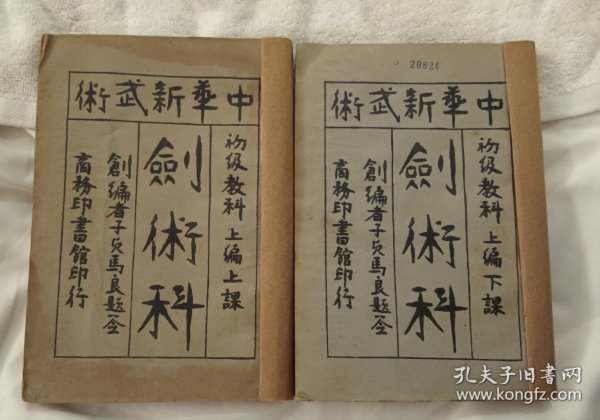 中華新武術
初級教科 上編上課
劍術科
創編者子貞馬良題簽
商務印書館印行
中華新武術
初級教科 上編下課
劍術科
創編者子貞馬良題簽
商務印書館印行
孔夫子旧书网